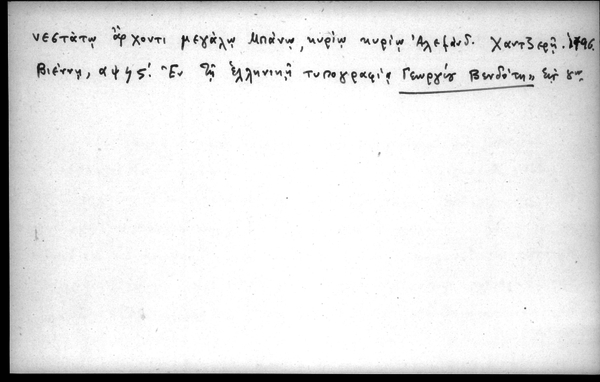 νεστάτῳ ἄρχοντι μεγάλῳ Μπάνῳ, κυρίῳ κυρίῳ Ἀλεξάνδ. Χαντζερῇ. 1796.
Βιέννῃ, αψϟϛ΄. Ἐν τῇ ἑλληνικῇ τυπογραφίᾳ Γεωργίου Βενδότη» εἰς